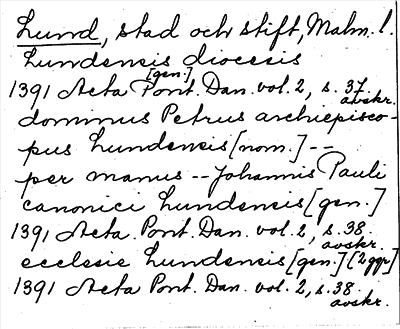 Lund, stad och stift, Malm. l.
Lundensis diocesis
[gen.]
1391 Acta Pont. Dan. vol. 2, s. 37.
avskr.
dominus Petrus archiepisco-
pus Lundensis [nom.] --
per manus -- Johannis Pauli
canonici Lundensis [gen.]
1391 Acta. Pont. Dan. vol. 2, s. 38.
avskr.
ecclesie Lundensis [gen.] [2 ggr]
1391 Acta Pont. Dan. vol. 2, s. 38.
avskr.